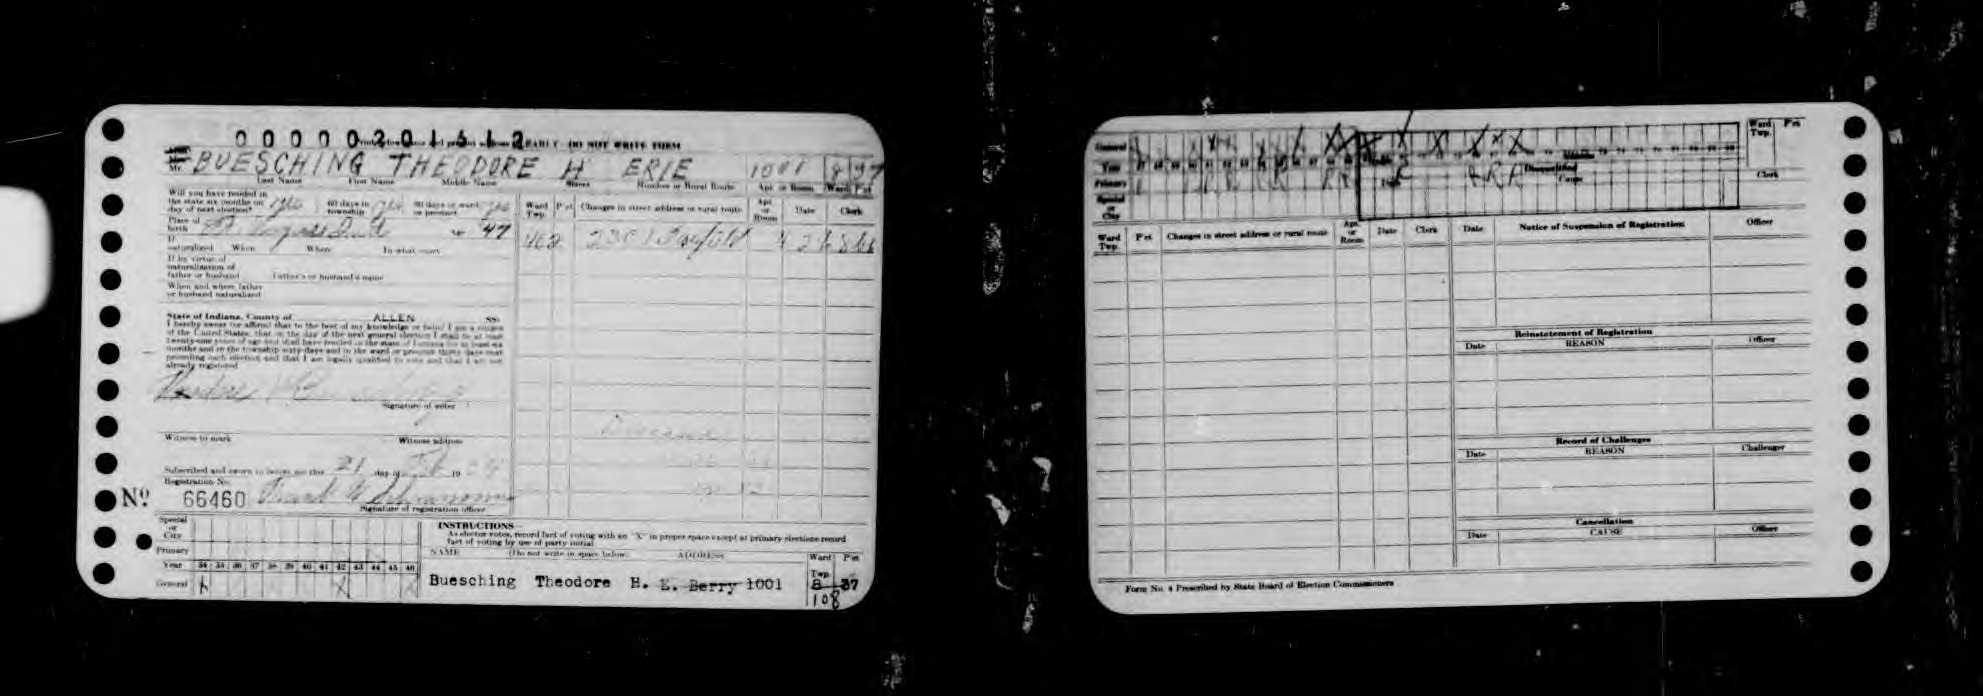 000000201612
EARLY DO NOT WRITE FIRM
Mr. BUESCHING THEODORE H ERIE 1001 8 37
Last Name First Name Middle Name Street Number or Rural Route Apt. or Room Ward P'ct
Will you have resided in
the state six months on
day of next election? yes 60 days in township yes 30 days in ward or precinct yes
Place of birth Ft. Wayne Ind 47
If naturalized When Where In what court
If by virtue of
naturalization of
father or husband Father's or husband's name
When and where father
or husband naturalized
Ward Twp. P'ct Changes in street address or rural route Apt. or Room Date Clerk
2301
State of Indiana, County of ALLEN SS:
I hereby swear (or affirm) that to the best of my knowledge or belief I am a citizen
of the United States, that on the day of the next general election I shall be at least
twenty-one years of age and shall have resided in the state of Indiana for at least six
months and in the township sixty days and in the ward or precinct thirty days next
preceding such election and that I am legally qualified to vote and that I am not
already registered
Theodore H Buesching
Signature of voter
Deceased
Witness to mark Witness address
Subscribed and sworn to before me this 21 day of Feb 19
Registration No.
No. 66460
Signature of registration officer
Special or City
Primary
Year 34 35 36 37 38 39 40 41 42 43 44 45 46
General X X X
INSTRUCTIONS—
As elector votes, record fact of voting with an "X" in proper space except at primary elections record
fact of voting by use of party initial
NAME (Do not write in space below) ADDRESS Ward Twp. P'ct
Buesching Theodore H. E. Berry 1001 8 37
108
General
Year
Primary
Special or City
Disqualified
Date Cause Clerk
Ward Twp. P'ct
Ward Twp. P'ct Changes in street address or rural route Apt. or Room Date Clerk
Date Notice of Suspension of Registration Officer
Reinstatement of Registration
Date REASON Officer
Record of Challenges
Date REASON Challenger
Cancellation
Date CAUSE Officer
Form No. 4 Prescribed by State Board of Election Commissioners